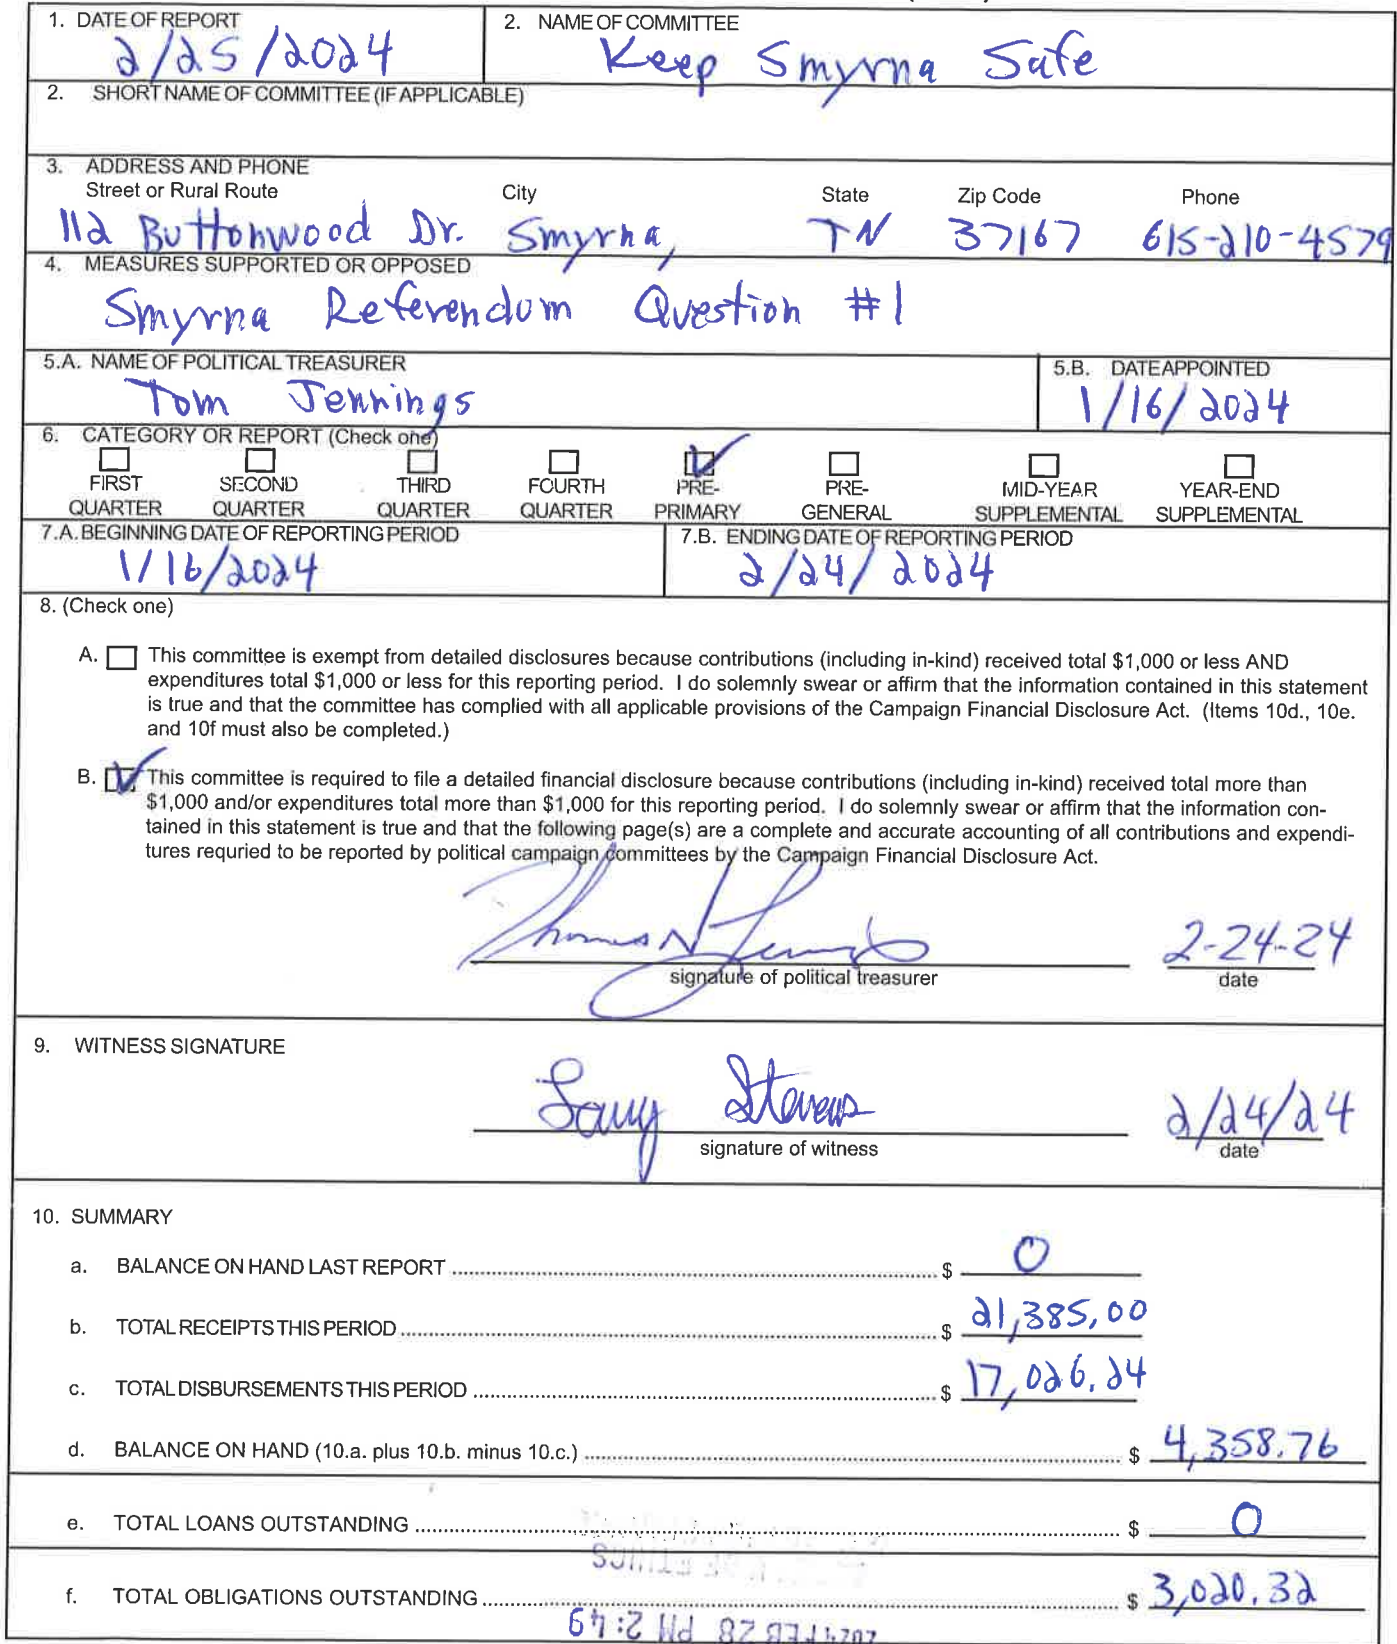 1. DATE OF REPORT
2/25/2024
2. NAME OF COMMITTEE
Keep Smyrna Safe
2. SHORT NAME OF COMMITTEE (IF APPLICABLE)
3. ADDRESS AND PHONE
Street or Rural Route City State Zip Code Phone
112 Buttonwood Dr. Smyrna, TN 37167 615-210-4579
4. MEASURES SUPPORTED OR OPPOSED
Smyrna Referendum Question #1
5.A. NAME OF POLITICAL TREASURER
Tom Jennings
5.B. DATE APPOINTED
1/16/2024
6. CATEGORY OR REPORT (Check one)
FIRST QUARTER
SECOND QUARTER
THIRD QUARTER
FOURTH QUARTER
PRE-PRIMARY
PRE-GENERAL
MID-YEAR SUPPLEMENTAL
YEAR-END SUPPLEMENTAL
7.A. BEGINNING DATE OF REPORTING PERIOD
1/16/2024
7.B. ENDING DATE OF REPORTING PERIOD
2/24/2024
8. (Check one)
A. This committee is exempt from detailed disclosures because contributions (including in-kind) received total $1,000 or less AND
expenditures total $1,000 or less for this reporting period. I do solemnly swear or affirm that the information contained in this statement
is true and that the committee has complied with all applicable provisions of the Campaign Financial Disclosure Act. (Items 10d., 10e.
and 10f must also be completed.)
B. This committee is required to file a detailed financial disclosure because contributions (including in-kind) received total more than
$1,000 and/or expenditures total more than $1,000 for this reporting period. I do solemnly swear or affirm that the information con-
tained in this statement is true and that the following page(s) are a complete and accurate accounting of all contributions and expendi-
tures requried to be reported by political campaign committees by the Campaign Financial Disclosure Act.
Thomas N Jennings 2-24-24
signature of political treasurer date
9. WITNESS SIGNATURE
Larry Stevens 2/24/24
signature of witness date
10. SUMMARY
a. BALANCE ON HAND LAST REPORT $ 0
b. TOTAL RECEIPTS THIS PERIOD $ 21,385.00
c. TOTAL DISBURSEMENTS THIS PERIOD $ 17,026.24
d. BALANCE ON HAND (10.a. plus 10.b. minus 10.c.) $ 4,358.76
e. TOTAL LOANS OUTSTANDING $ 0
f. TOTAL OBLIGATIONS OUTSTANDING $ 3,020.32
2024 FEB 28 PM 2:49